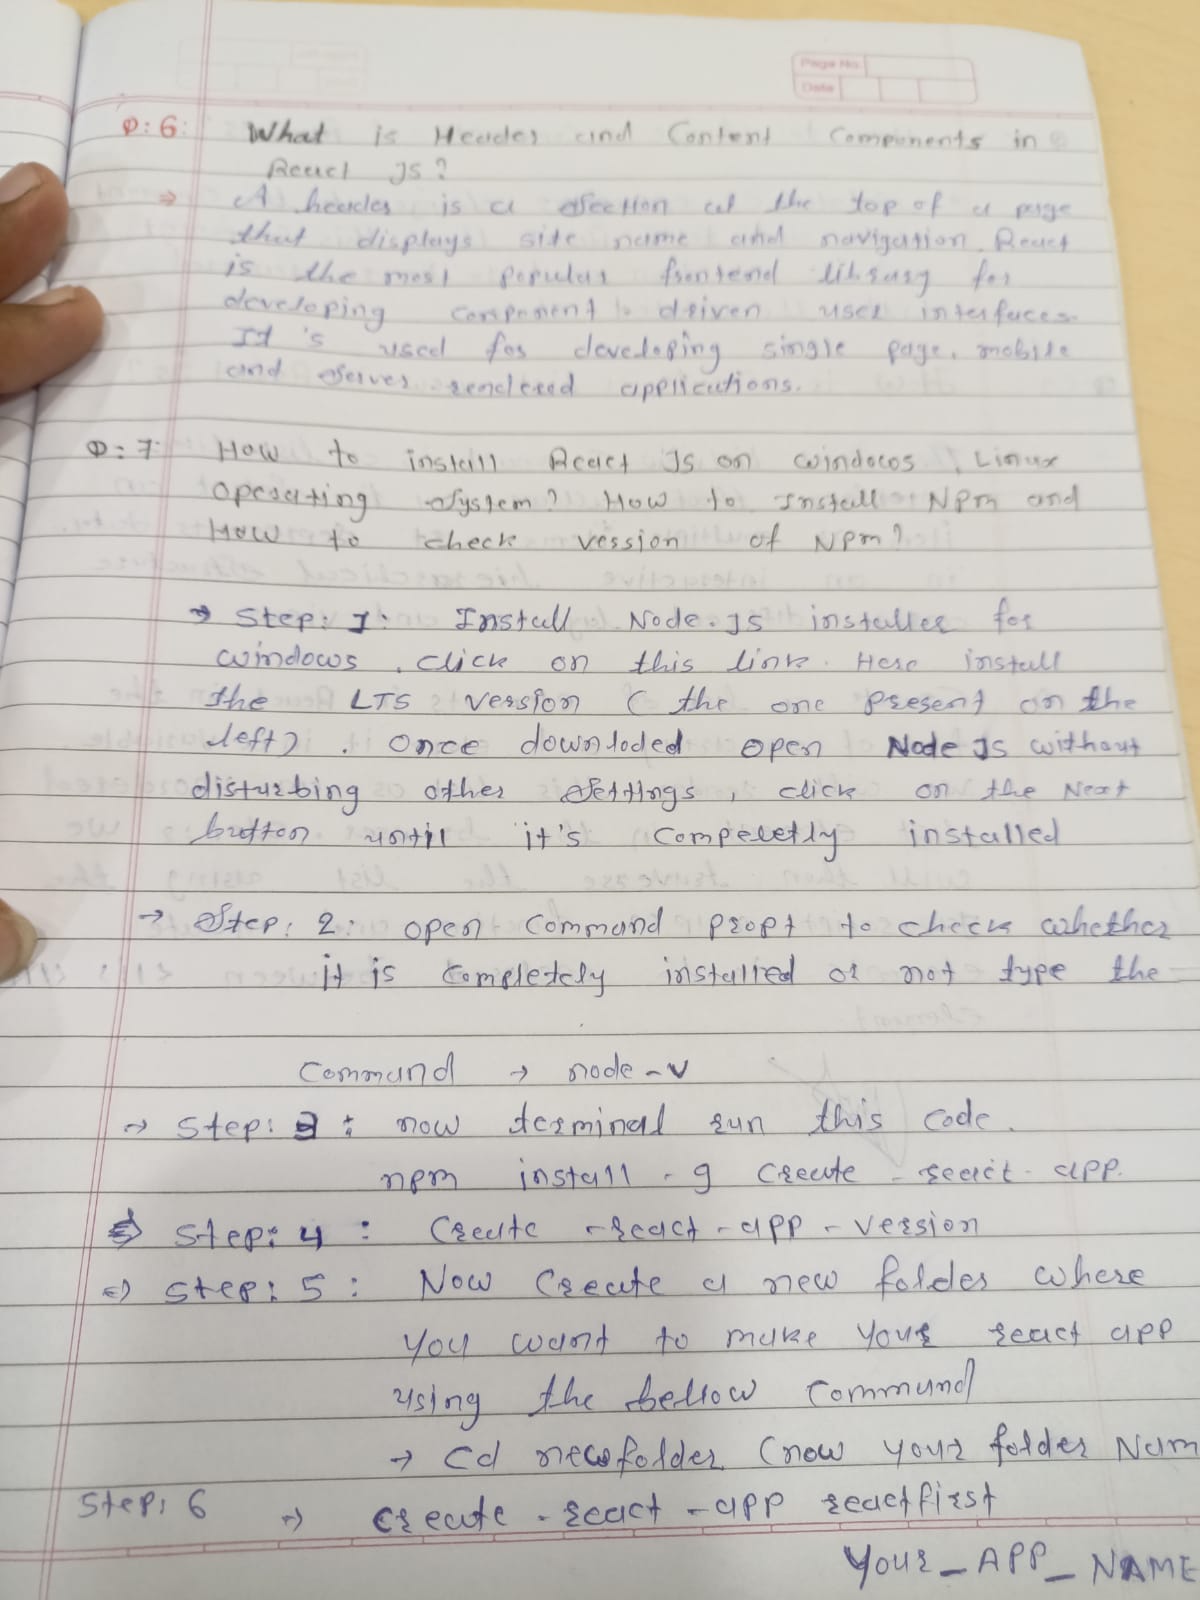 Page No.
Date
Q: 6: What is Header and Content Components in
React JS?
⇒ A header is a section at the top of a page
that displays site name and navigation. React
is the most popular frontend library for
developing component - driven user interfaces.
It's used for developing single page, mobile
and server rendered applications.
Q: 7: How to install React JS on windows, Linux
operating system? How to Install NPM and
How to check version of NPM?
→ Step: 1: Install Node.JS installer for
windows, click on this link. Here install
the LTS version (the one present on the
left). Once downloded open Node JS without
disturbing other settings, click on the Next
button until it's compeletly installed
→ Step: 2: open Command propt to check whether
it is completely installed or not type the
Command → node -v
→ Step: 3: now terminal run this code.
npm install -g create-react-app.
⇒ Step: 4: Create-react-app-version
⇒ Step: 5: Now Create a new folder where
you want to make your react app
using the bellow command
→ Cd newfolder (now your folder Nam
Step: 6 → create-react-app reactfirst
Your_APP_NAME